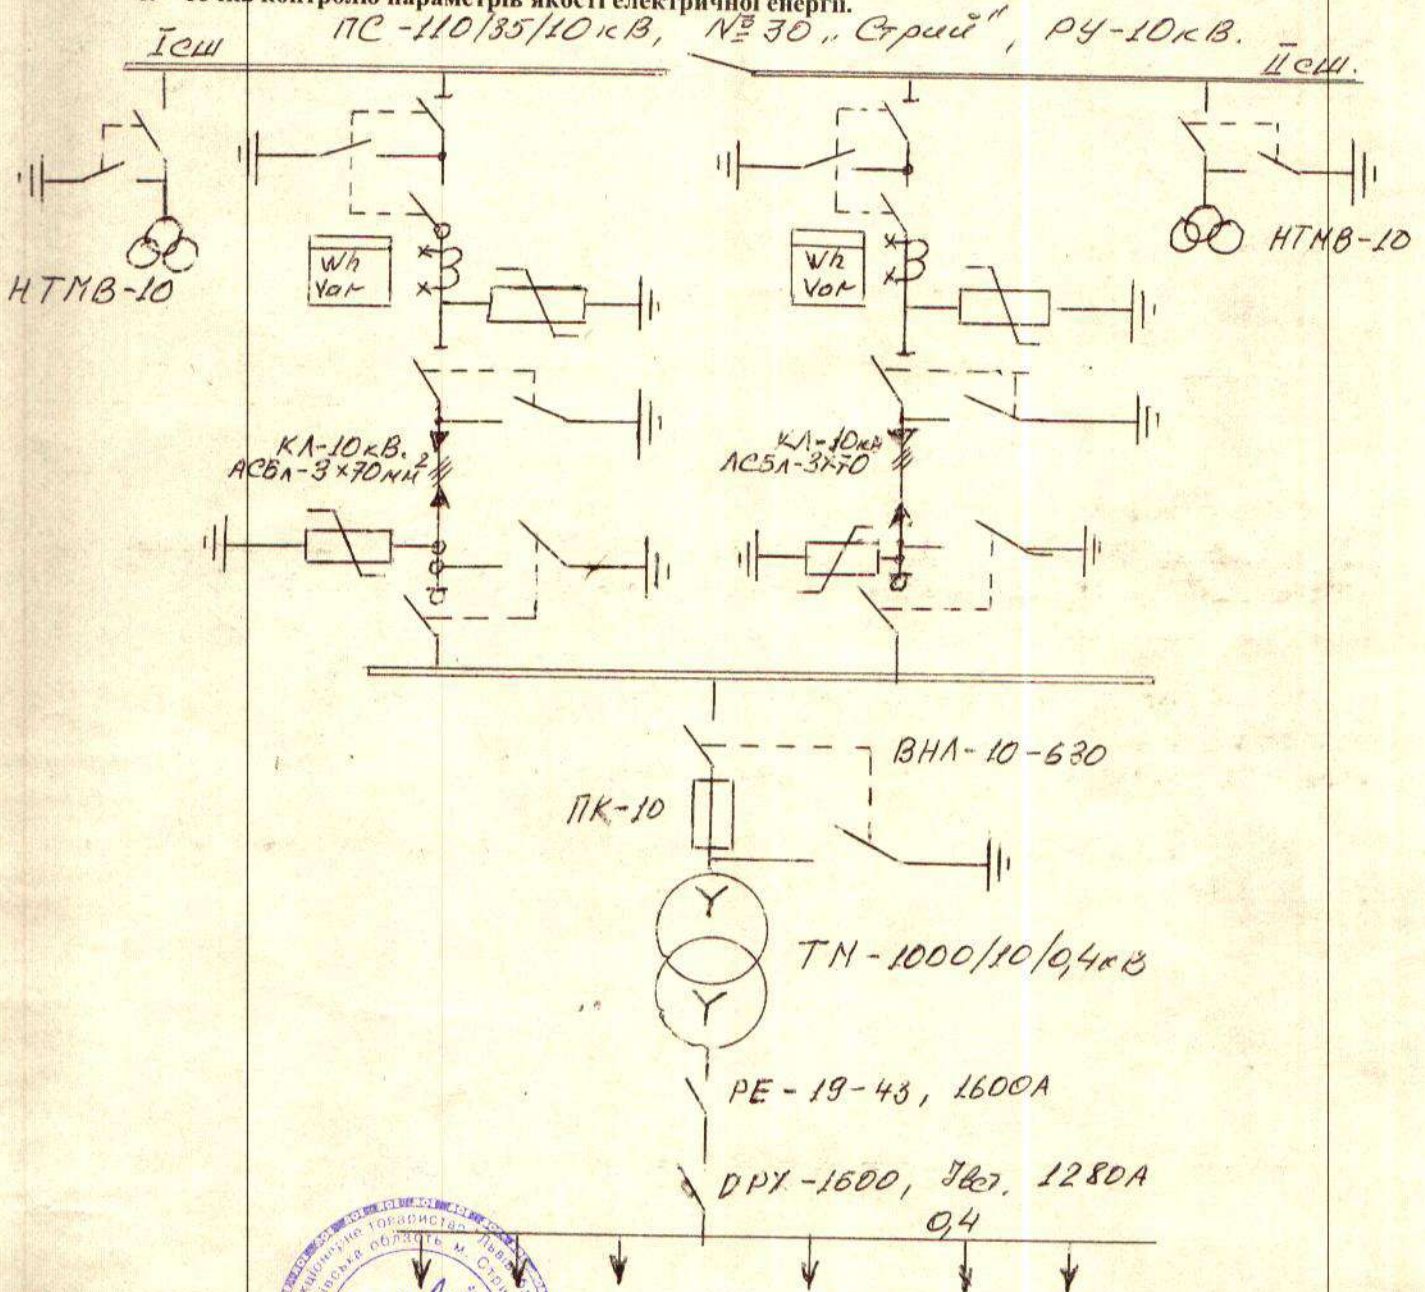 контролю параметрів якості електричної енергії.
ПС-110/35/10кВ, № 30 „Стрий", РУ-10кВ.
Ісш
ІІсш.
НТМВ-10
Wh
Var
Wh
Var
НТМВ-10
КЛ-10кВ.
АСБл-3×70мм²
КЛ-10кВ
АСБл-3×70
ВНЛ-10-630
ПК-10
Y
Y
ТМ-1000/10/0,4кВ
РЕ-19-43, 1600А
1600, Івст. 1280А
0,4
товариство
область м.